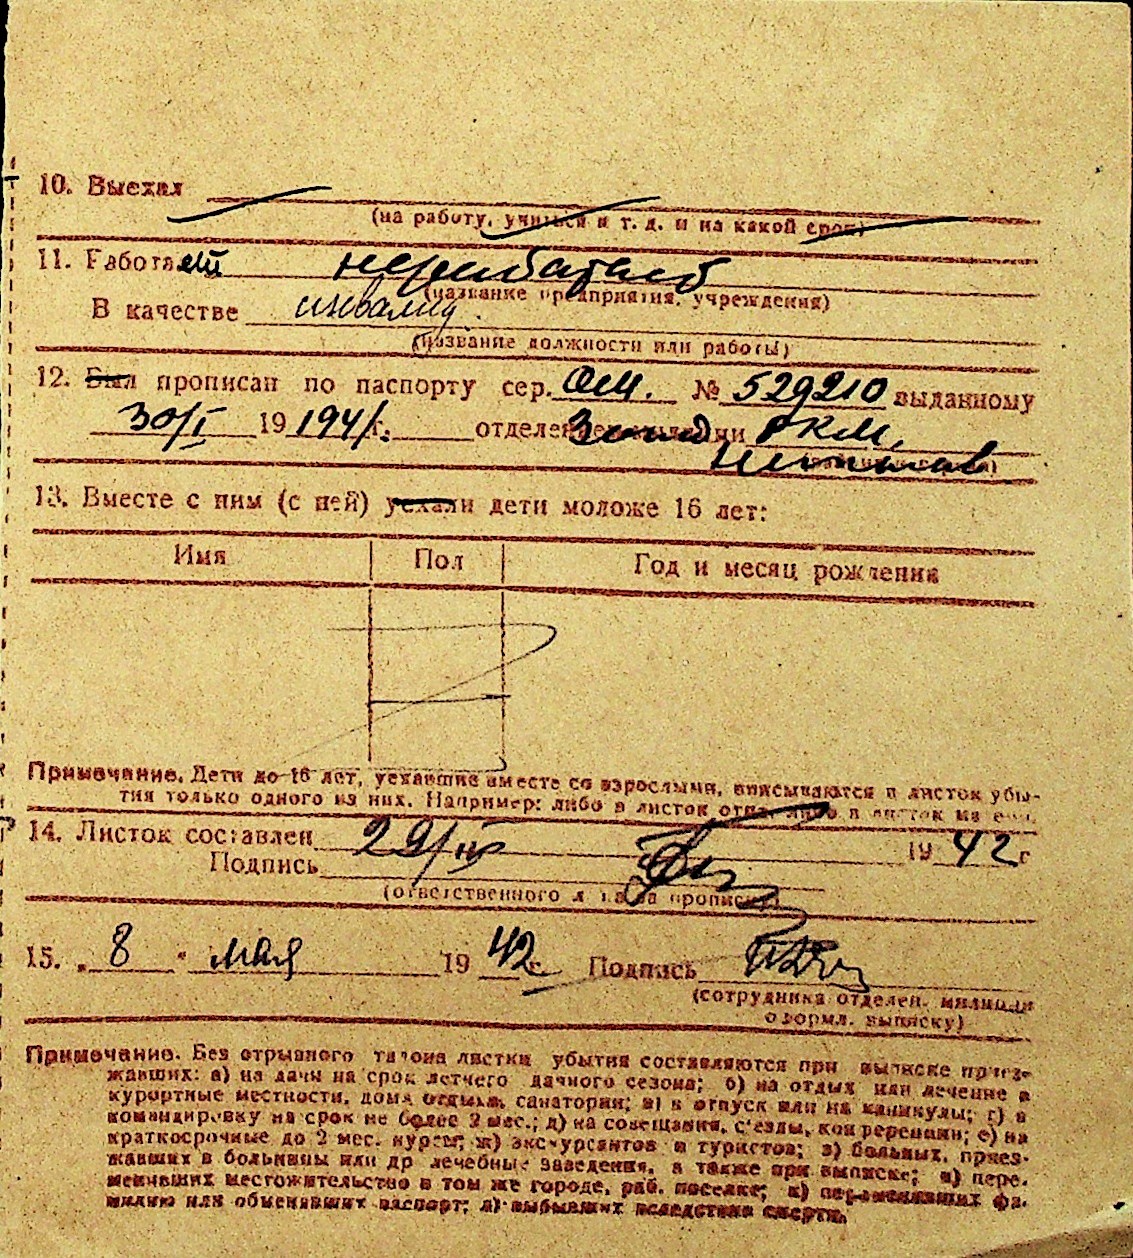 10. Выехал
(на работу, учиться и т. д. и на какой срок)
11. Работает
(название предприятия, учреждения)
В качестве инвалид.
(название должности или работы)
12. Был прописан по паспорту сер. № 529210 выданному
30/I 19 1941 г. отделением милиции РКМ,
13. Вместе с ним (с ней) уехали дети моложе 16 лет:
Имя Пол Год и месяц рождения
Примечание. Дети до 16 лет, уехавшие вместе со взрослыми, вписываются в листок убы-
тия только одного из них. Например: либо в листок отца, либо в листок матери.
14. Листок составлен 29/IV 19 42 г
Подпись
(ответственного лица за прописку)
15. „ 8 “ мая 19 42 г. Подпись
(сотрудника отделен. милиции
оформл. выписку)
Примечание. Без отрывного талона листки убытия составляются при выписке приез-
жавших: а) на дачи на срок летнего дачного сезона; б) на отдых или лечение в
курортные местности, дома отдыха, санатории; в) в отпуск или на каникулы; г) в
командировку на срок не более 2 мес.; д) на совещания, с'езды, конференции; е) на
краткосрочные до 2 мес. курсы; ж) экскурсантов и туристов; з) больных, приез-
жавших в больницы или др лечебные заведения, а также при выписке; и) пере-
менивших местожительство в том же городе, раб. поселке; к) переменивших фа-
милию или обменявших паспорт; л) выбывших вследствие смерти.